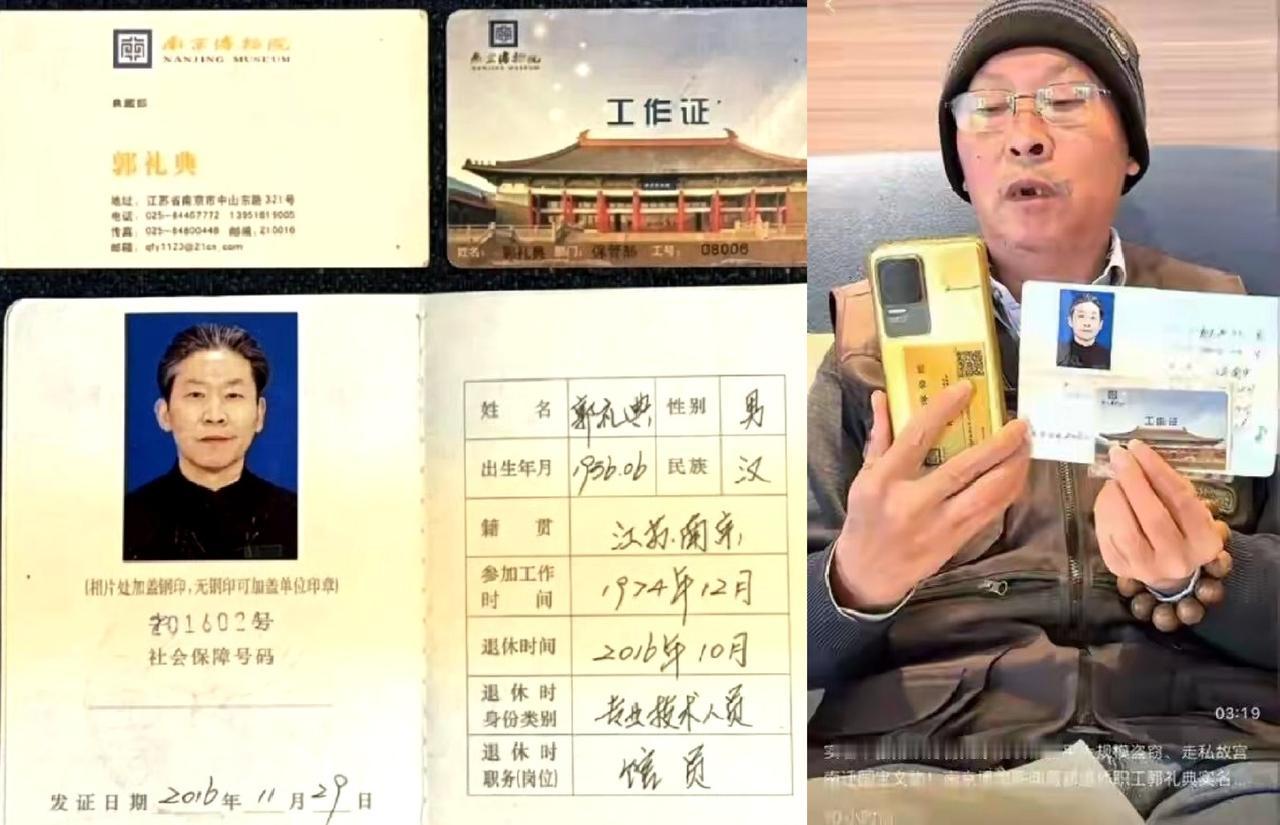 南京博物院
NANJING MUSEUM
典藏部
郭礼典
地址：江苏省南京市中山东路321号
电话：025-84467772 13951619005
传真：025-84800448 邮编：210016
邮箱：qfy1123@21cn.com
南京博物院
NANJING MUSEUM
工作证
姓名：郭礼典 部门：保管部 工号：08006
(相片处加盖钢印，无钢印可加盖单位印章)
201602号
社会保障号码
发证日期 2016年11月29日
姓名 郭礼典 性别 男
出生年月 1956.06 民族 汉
籍贯 江苏南京
参加工作时间 1974年12月
退休时间 2016年10月
退休时身份类别 专业技术人员
退休时职务(岗位) 馆员
工作证
03:19
大规模盗窃、走私故宫
南迁国宝文物！南京博物院典藏部退休职工郭礼典实名...
10小时前